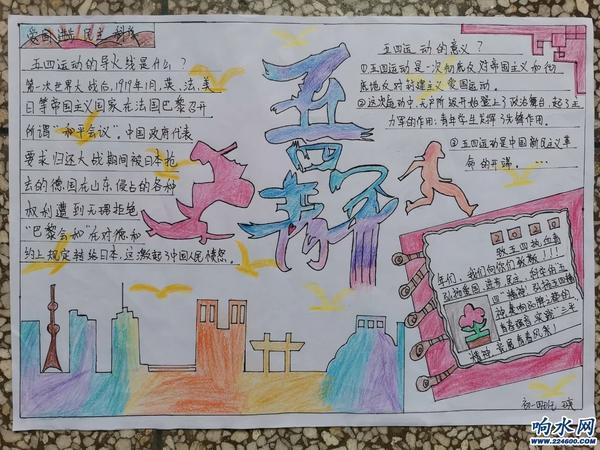 爱国 进步 民主 科学
五四运动的导火线是什么？
第一次世界大战后，1919年1月，英、法、美
日等帝国主义国家在法国巴黎召开
所谓"和平会议"，中国政府代表
要求归还大战期间被日本抢
去的德国在山东侵占的各种
权利遭到无理拒绝
"巴黎会和"在对德和
约上规定转给日本，这激起了中国人民愤怒。
五四青年
五四运动的意义？
①五四运动是一次彻底反对帝国主义和彻
底地反对封建主义爱国运动。
②这次运动中，无产阶级开始登上了政治舞台，起了主
力军的作用；青年学生发挥了先锋作用。
③五四运动是中国新民主义革
命的开端。……
2020
致五四热血青
年们，我们向你们致敬！！！
弘扬爱国、进步、民主、科学的五
四精神，弘扬五四精
神
精神，发展青春风采！
响水网
www.224600.com